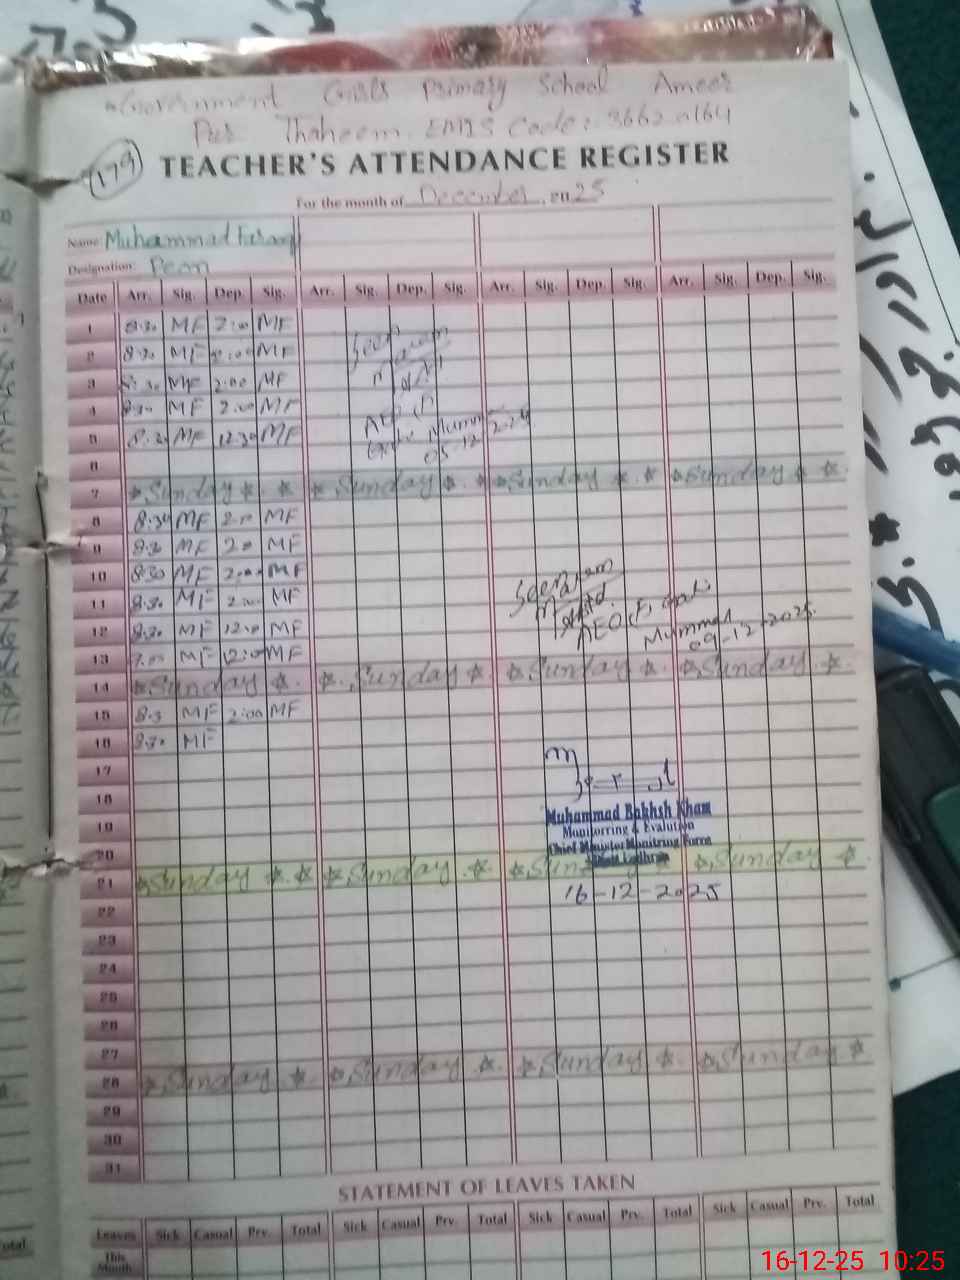 Government Girls Primary School Ameer
Pur Thaheem. EMIS Code: 36620164
179
TEACHER'S ATTENDANCE REGISTER
For the month of December 2025
Name Muhammad Farooq
Designation Peon
Date Arr. Sig. Dep. Sig. Arr. Sig. Dep. Sig. Arr. Sig. Dep. Sig. Arr. Sig. Dep. Sig.
1 8:30 MF 2:00 MF
2 8:30 MF 2:00 MF
3 8:30 MF 2:00 MF
4 8:30 MF 2:00 MF
5 8:30 MF 12:30 MF
Seen
AEO
05-12-2025
6
7 *Sunday * * * Sunday * * * Sunday * * * Sunday * *
8 8:30 MF 2:00 MF
9 8:30 MF 2:00 MF
10 8:30 MF 2:00 MF
11 8:30 MF 2:00 MF
12 8:30 MF 12:00 MF
13 MF 12:00 MF
AEO
09-12-2025
14 *Sunday * * Sunday * * Sunday * * Sunday *
15 8:30 MF 2:00 MF
16 8:30 MF
17
18
19
20
Muhammad Bakhsh Kham
Monitorring & Evalution
Chief Minister Monitring Force
Distt Lodhran
21 *Sunday * * * Sunday * * Sunday * * Sunday *
16-12-2025
22
23
24
25
26
27
28 * Sunday * * Sunday * * Sunday * * Sunday *
29
30
31
STATEMENT OF LEAVES TAKEN
Leaves Sick Casual Prv. Total Sick Casual Prv. Total Sick Casual Prv. Total Sick Casual Prv. Total
This
Month
16-12-25 10:25